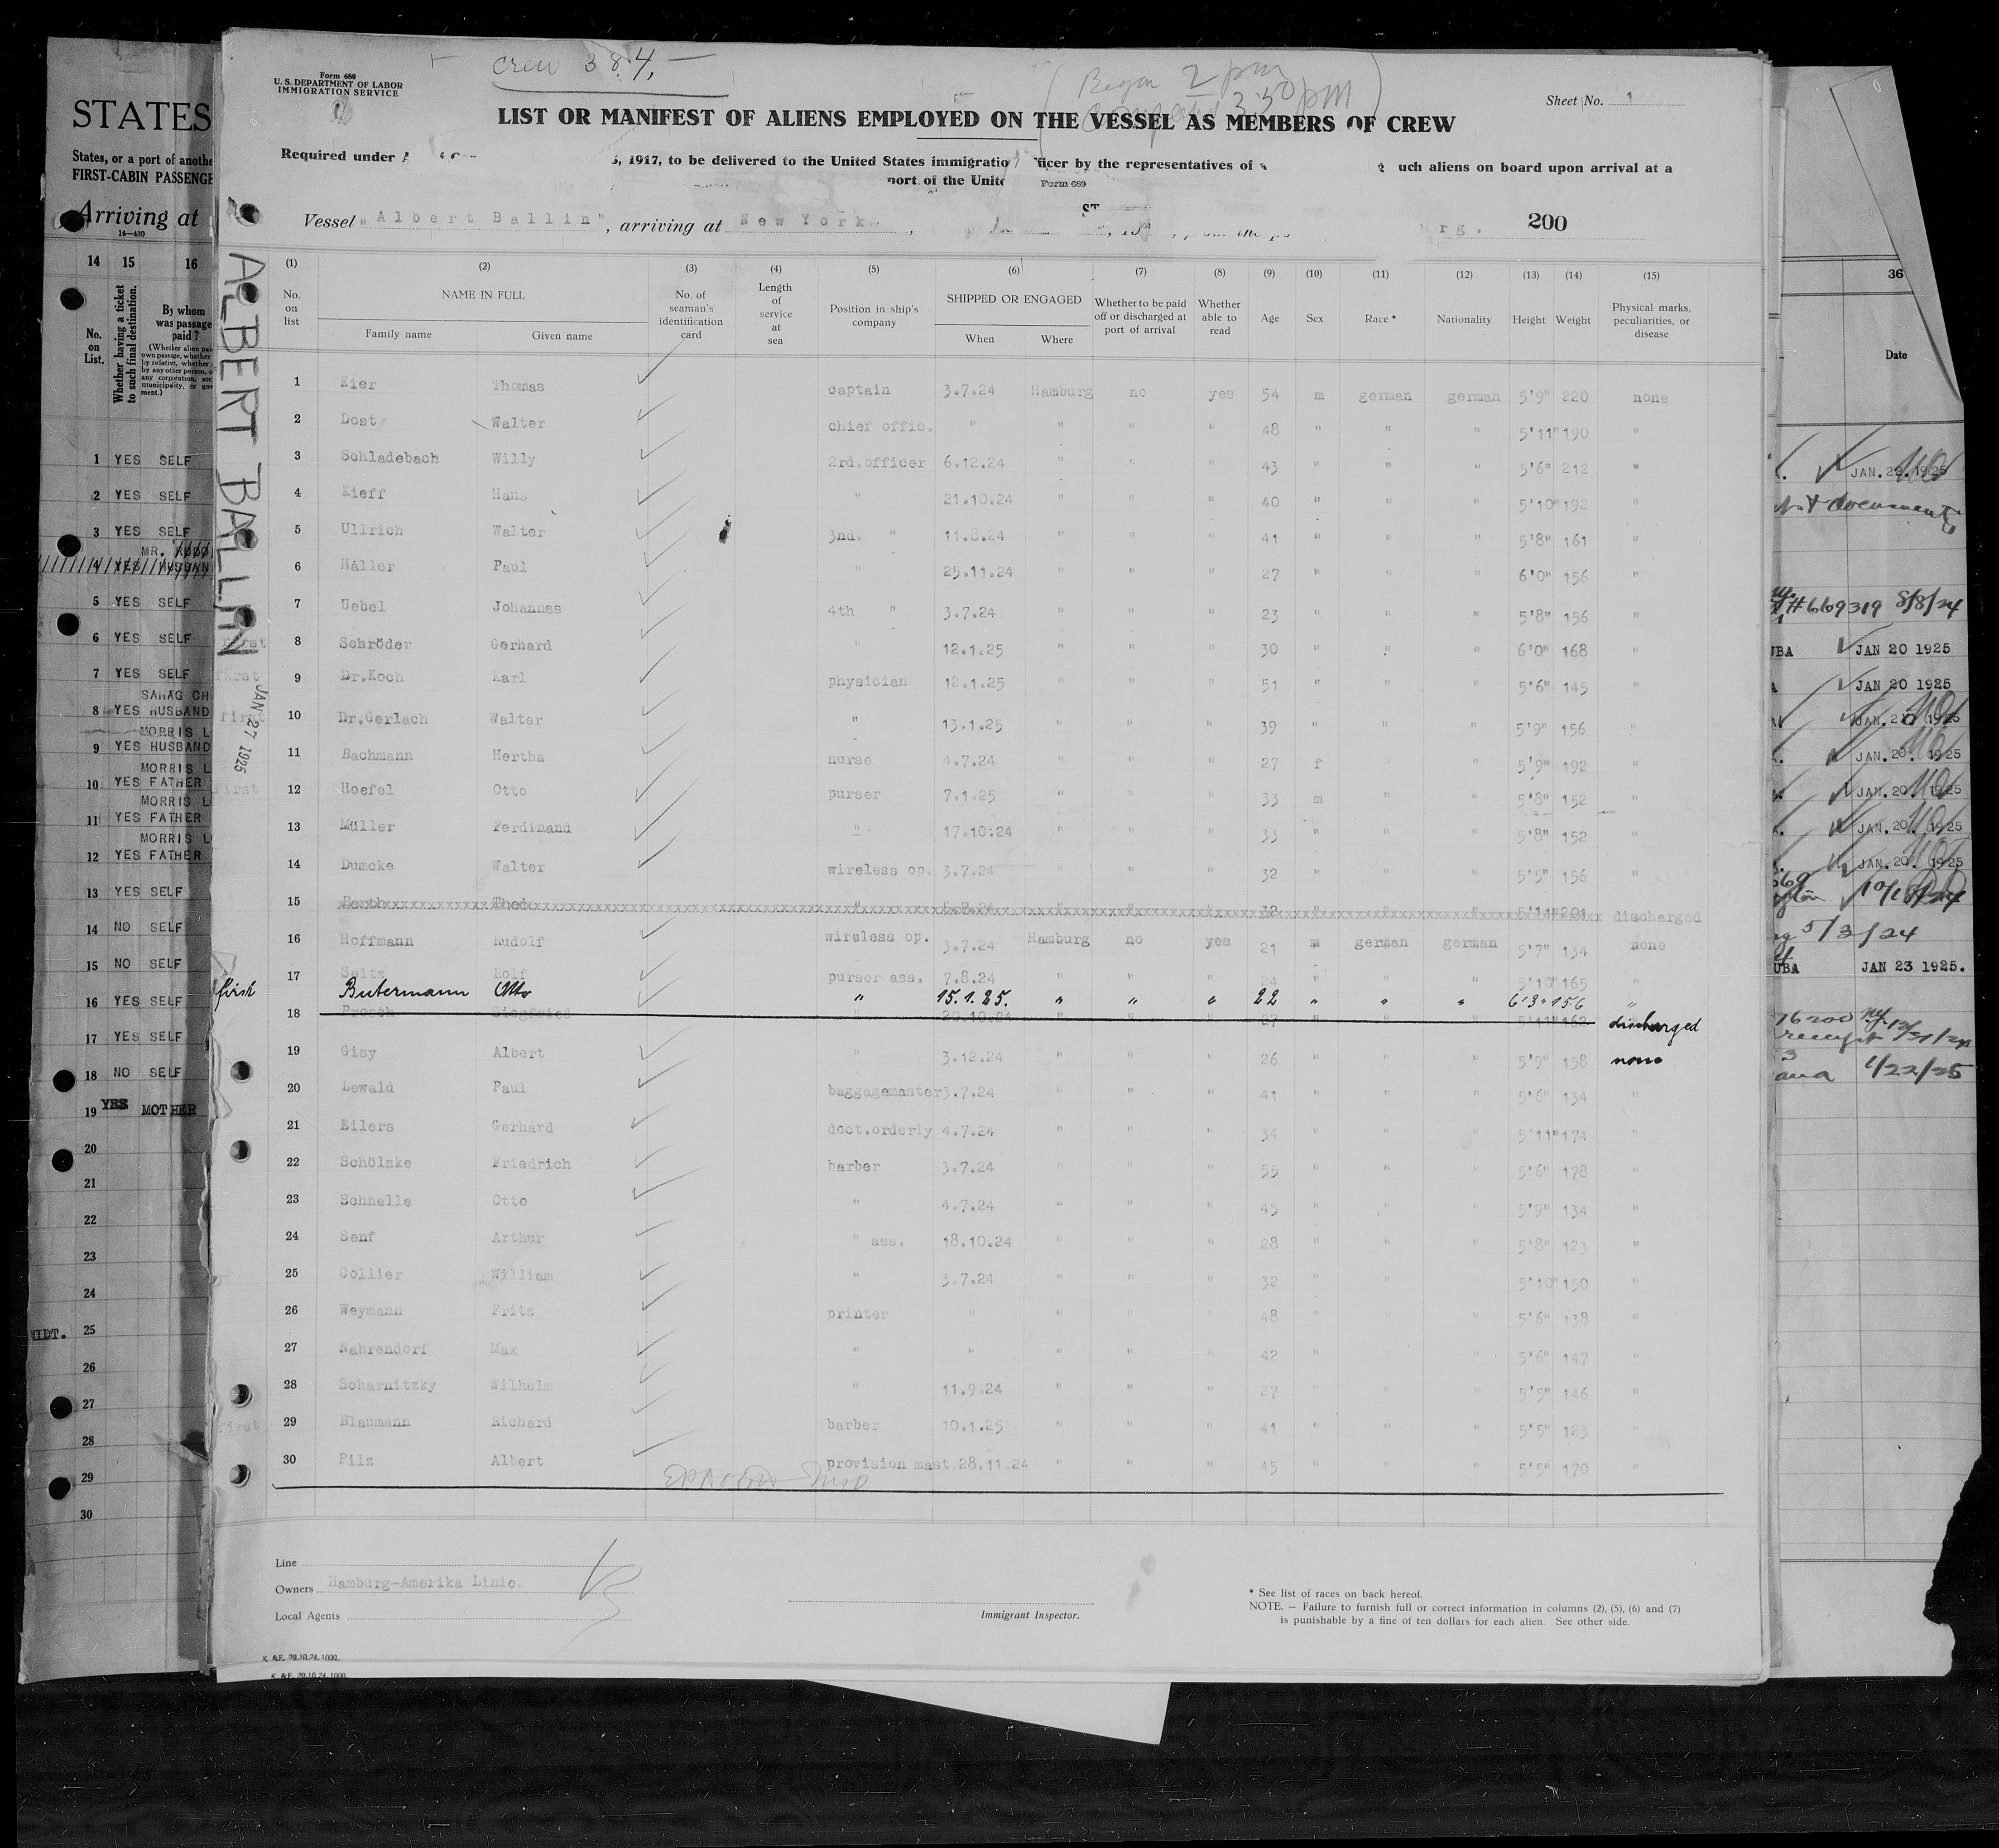 STATES
States, or a port of anothe
FIRST-CABIN PASSENGE
Arriving at
14—430
14 15 16
No. on List.
Whether having a ticket to such final destination.
By whom was passage paid?
(Whether alien pai
own passage, whether
by relative, whether
by any other person, o
any corporation, soc
municipality, or gov
ment.)
1 YES SELF
2 YES SELF
3 YES SELF
MR.
4 YES HUSBAN
5 YES SELF
6 YES SELF
7 YES SELF
SAHAG CH
8 YES HUSBAND
MORRIS L
9 YES HUSBAND
MORRIS L
10 YES FATHER
MORRIS L
11 YES FATHER
MORRIS L
12 YES FATHER
13 YES SELF
14 NO SELF
15 NO SELF
16 YES SELF
17 YES SELF
18 NO SELF
19 YES MOTHER
20
21
22
23
24
25
26
27
28
29
30
Form 680
U. S. DEPARTMENT OF LABOR
IMMIGRATION SERVICE
Crew 384.
Began 2 pm
Completed 3 50 pm
Sheet No. 1
LIST OR MANIFEST OF ALIENS EMPLOYED ON THE VESSEL AS MEMBERS OF CREW
Required under , 1917, to be delivered to the United States immigratio ficer by the representatives of uch aliens on board upon arrival at a
port of the Unite
Form 689
Vessel "Albert Ballin", arriving at New York, rg. 200
ALBERT BALLIN
JAN 27 1925
(1) (2) (3) (4) (5) (6) (7) (8) (9) (10) (11) (12) (13) (14) (15)
No. on list
NAME IN FULL
Family name Given name
No. of seaman's identification card
Length of service at sea
Position in ship's company
SHIPPED OR ENGAGED
When Where
Whether to be paid off or discharged at port of arrival
Whether able to read
Age Sex Race * Nationality Height Weight
Physical marks, peculiarities, or disease
1 Kier Thomas captain 3.7.24 Hamburg no yes 54 m german german 5'9" 220 none
2 Dost Walter chief offic. " " " " 48 " " " 5'11" 190 "
3 Schladebach Willy 2rd.officer 6.12.24 " " " 43 " " " 5'6" 212 "
4 Kieff Hans " 21.10.24 " " " 40 " " " 5'10" 192 "
5 Ullrich Walter 3nd. " 11.8.24 " " " 41 " " " 5'8" 161 "
6 Haller Paul " 25.11.24 " " " 27 " " " 6'0" 156 "
7 Uebel Johannes 4th " 3.7.24 " " " 23 " " " 5'8" 156 "
first 8 Schröder Gerhard " 12.1.25 " " " 30 " " " 6'0" 168 "
first 9 Dr.Koch Karl physician 12.1.25 " " " 51 " " " 5'6" 145 "
first 10 Dr.Gerlach Walter " 13.1.25 " " " 39 " " " 5'9" 156 "
11 Bachmann Hertha nurse 4.7.24 " " " 27 f " " 5'9" 192 "
first 12 Hoefel Otto purser 7.1.25 " " " 33 m " " 5'8" 152 "
13 Müller Ferdinand " 17.10.24 " " " 33 " " " 5'8" 152 "
14 Dumcke Walter wireless op. 3.7.24 " " " 32 " " " 5'5" 156 "
15 discharged
16 Hoffmann Rudolf wireless op. 3.7.24 Hamburg no yes 21 m german german 5'7" 134 none
17 Seitz Rolf purser ass. 7.8.24 " " " 24 " " " 5'10" 165 "
first Butermann Otto " 15.1.25. " " " 22 " " " 6'3" 156 "
18 Prosch Siegfried " 20.10.24 " " " 27 " " " 5'11" 162 discharged
19 Gisy Albert " 3.12.24 " " " 26 " " " 5'9" 158 none
20 Lewald Paul baggagemaster 3.7.24 " " " 41 " " " 5'6" 134 "
21 Eilers Gerhard doct.orderly 4.7.24 " " " 34 " " " 5'11" 174 "
22 Schölzke Friedrich barber 3.7.24 " " " 55 " " " 5'6" 178 "
23 Schnelle Otto " 4.7.24 " " " 45 " " " 5'9" 134 "
24 Senf Arthur " ass. 18.10.24 " " " 28 " " " 5'8" 123 "
25 Collier William " 3.7.24 " " " 32 " " " 5'10" 150 "
26 Weymann Fritz printer " " " " 48 " " " 5'6" 138 "
27 Nahrendorf Max " " " " " 42 " " " 5'6" 147 "
28 Scharnitzky Wilhelm " 11.9.24 " " " 27 " " " 5'5" 146 "
first 29 Blaumann Richard barber 10.1.25 " " " 41 " " " 5'5" 123 "
30 Pilz Albert provision mast. 28.11.24 " " " 45 " " " 5'5" 170 "
Line
Owners Hamburg-Amerika Linie.
Local Agents
Immigrant Inspector.
* See list of races on back hereof.
NOTE. — Failure to furnish full or correct information in columns (2), (5), (6) and (7)
is punishable by a fine of ten dollars for each alien. See other side.
K. &F. 29.10.24.1000.
K. &F. 29.10.24.1000
36
Date
JAN. 22. 1925
documents
#669319 8/8/24
UBA JAN 20 1925
JAN 20 1925
JAN. 1925
JAN. 20. 1925
JAN. 20. 1925
JAN. 20. 1925
JAN. 20. 1925
5/3/24
UBA JAN 23 1925.
76200
ana 1/22/25